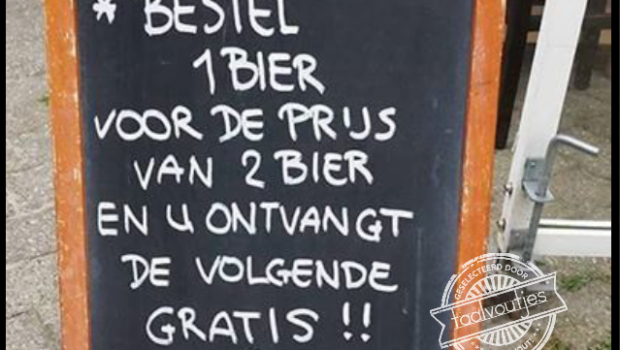 * BESTEL
1 BIER
VOOR DE PRIJS
VAN 2 BIER
EN U ONTVANGT
DE VOLGENDE
GRATIS !!
GESELECTEERD DOOR
taalvoutjes